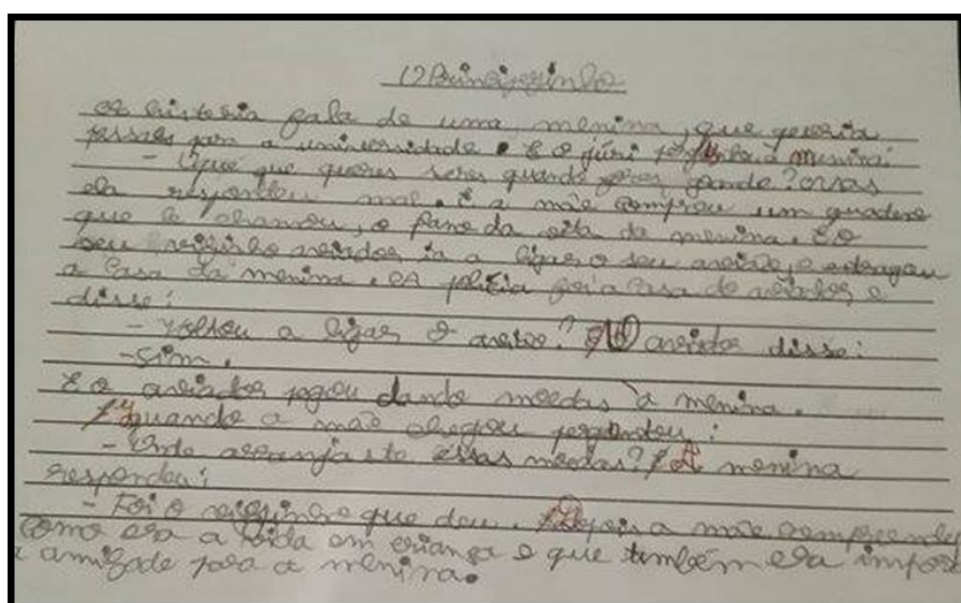 O Principezinho
A história fala de uma menina, que queria
passar para a universidade. E o júri perguntou à menina:
- Oque que queres seres quando fores grande? mas
ela respondeu mal. E a mãe comprou um quadero
que se chamou, o Pano da vida da menina. E o
seu vizinho aviador ia a ligar o seu avião, e estragou
a Casa da menina. A polícia foi a Casa do aviador, e
disse:
- Voltou a ligar o avião? O aviador disse:
- Sim.
E o aviador pagou dando moedas à menina.
Quando a mãe chegou perguntou:
- Onde arranjaste essas moedas? A menina
respondeu:
- Foi o vizinho que deu. Depois a mãe compreende
como era a Vida em criança e que também era impor
a amizade para a menina.